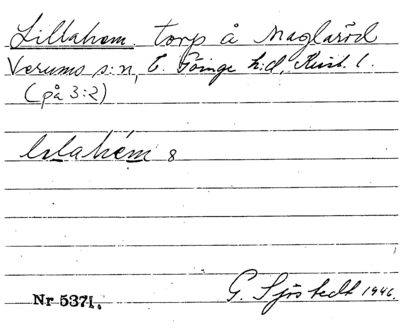 Lillahem. torp å Maglaröd
Verums s:n, Ö. Göinge h:d, Krist. l.
(på 3:2)
lılahém 8
G. Sjöstedt 1946.
Nr 5371.